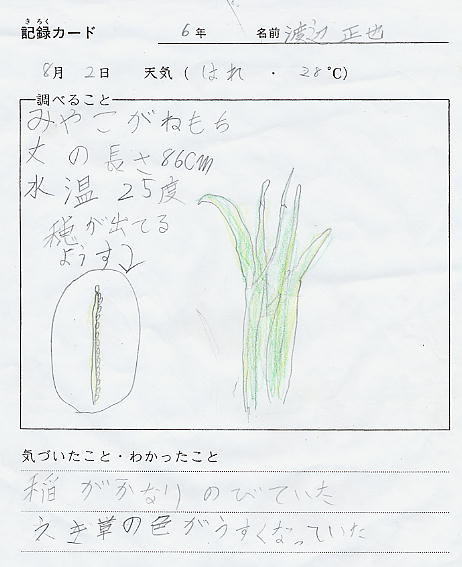 きろく
記録カード 6年 名前 渡辺 正也
8月 2日 天気 (はれ ・ 28℃)
調べること
みやこがねもち
丈の長さ86cm
水温25度
穂が出てる
ようす
気づいたこと・わかったこと
稲がかなりのびていた
えき草の色がうすくなっていた